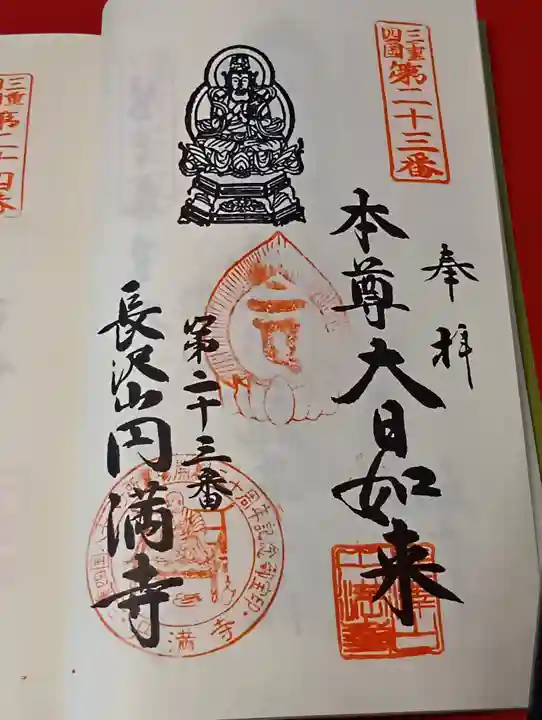 三重
四国
第二十三番
奉拝
本尊大日如来
第二十三番
長沢山円満寺
三重
第二十四番